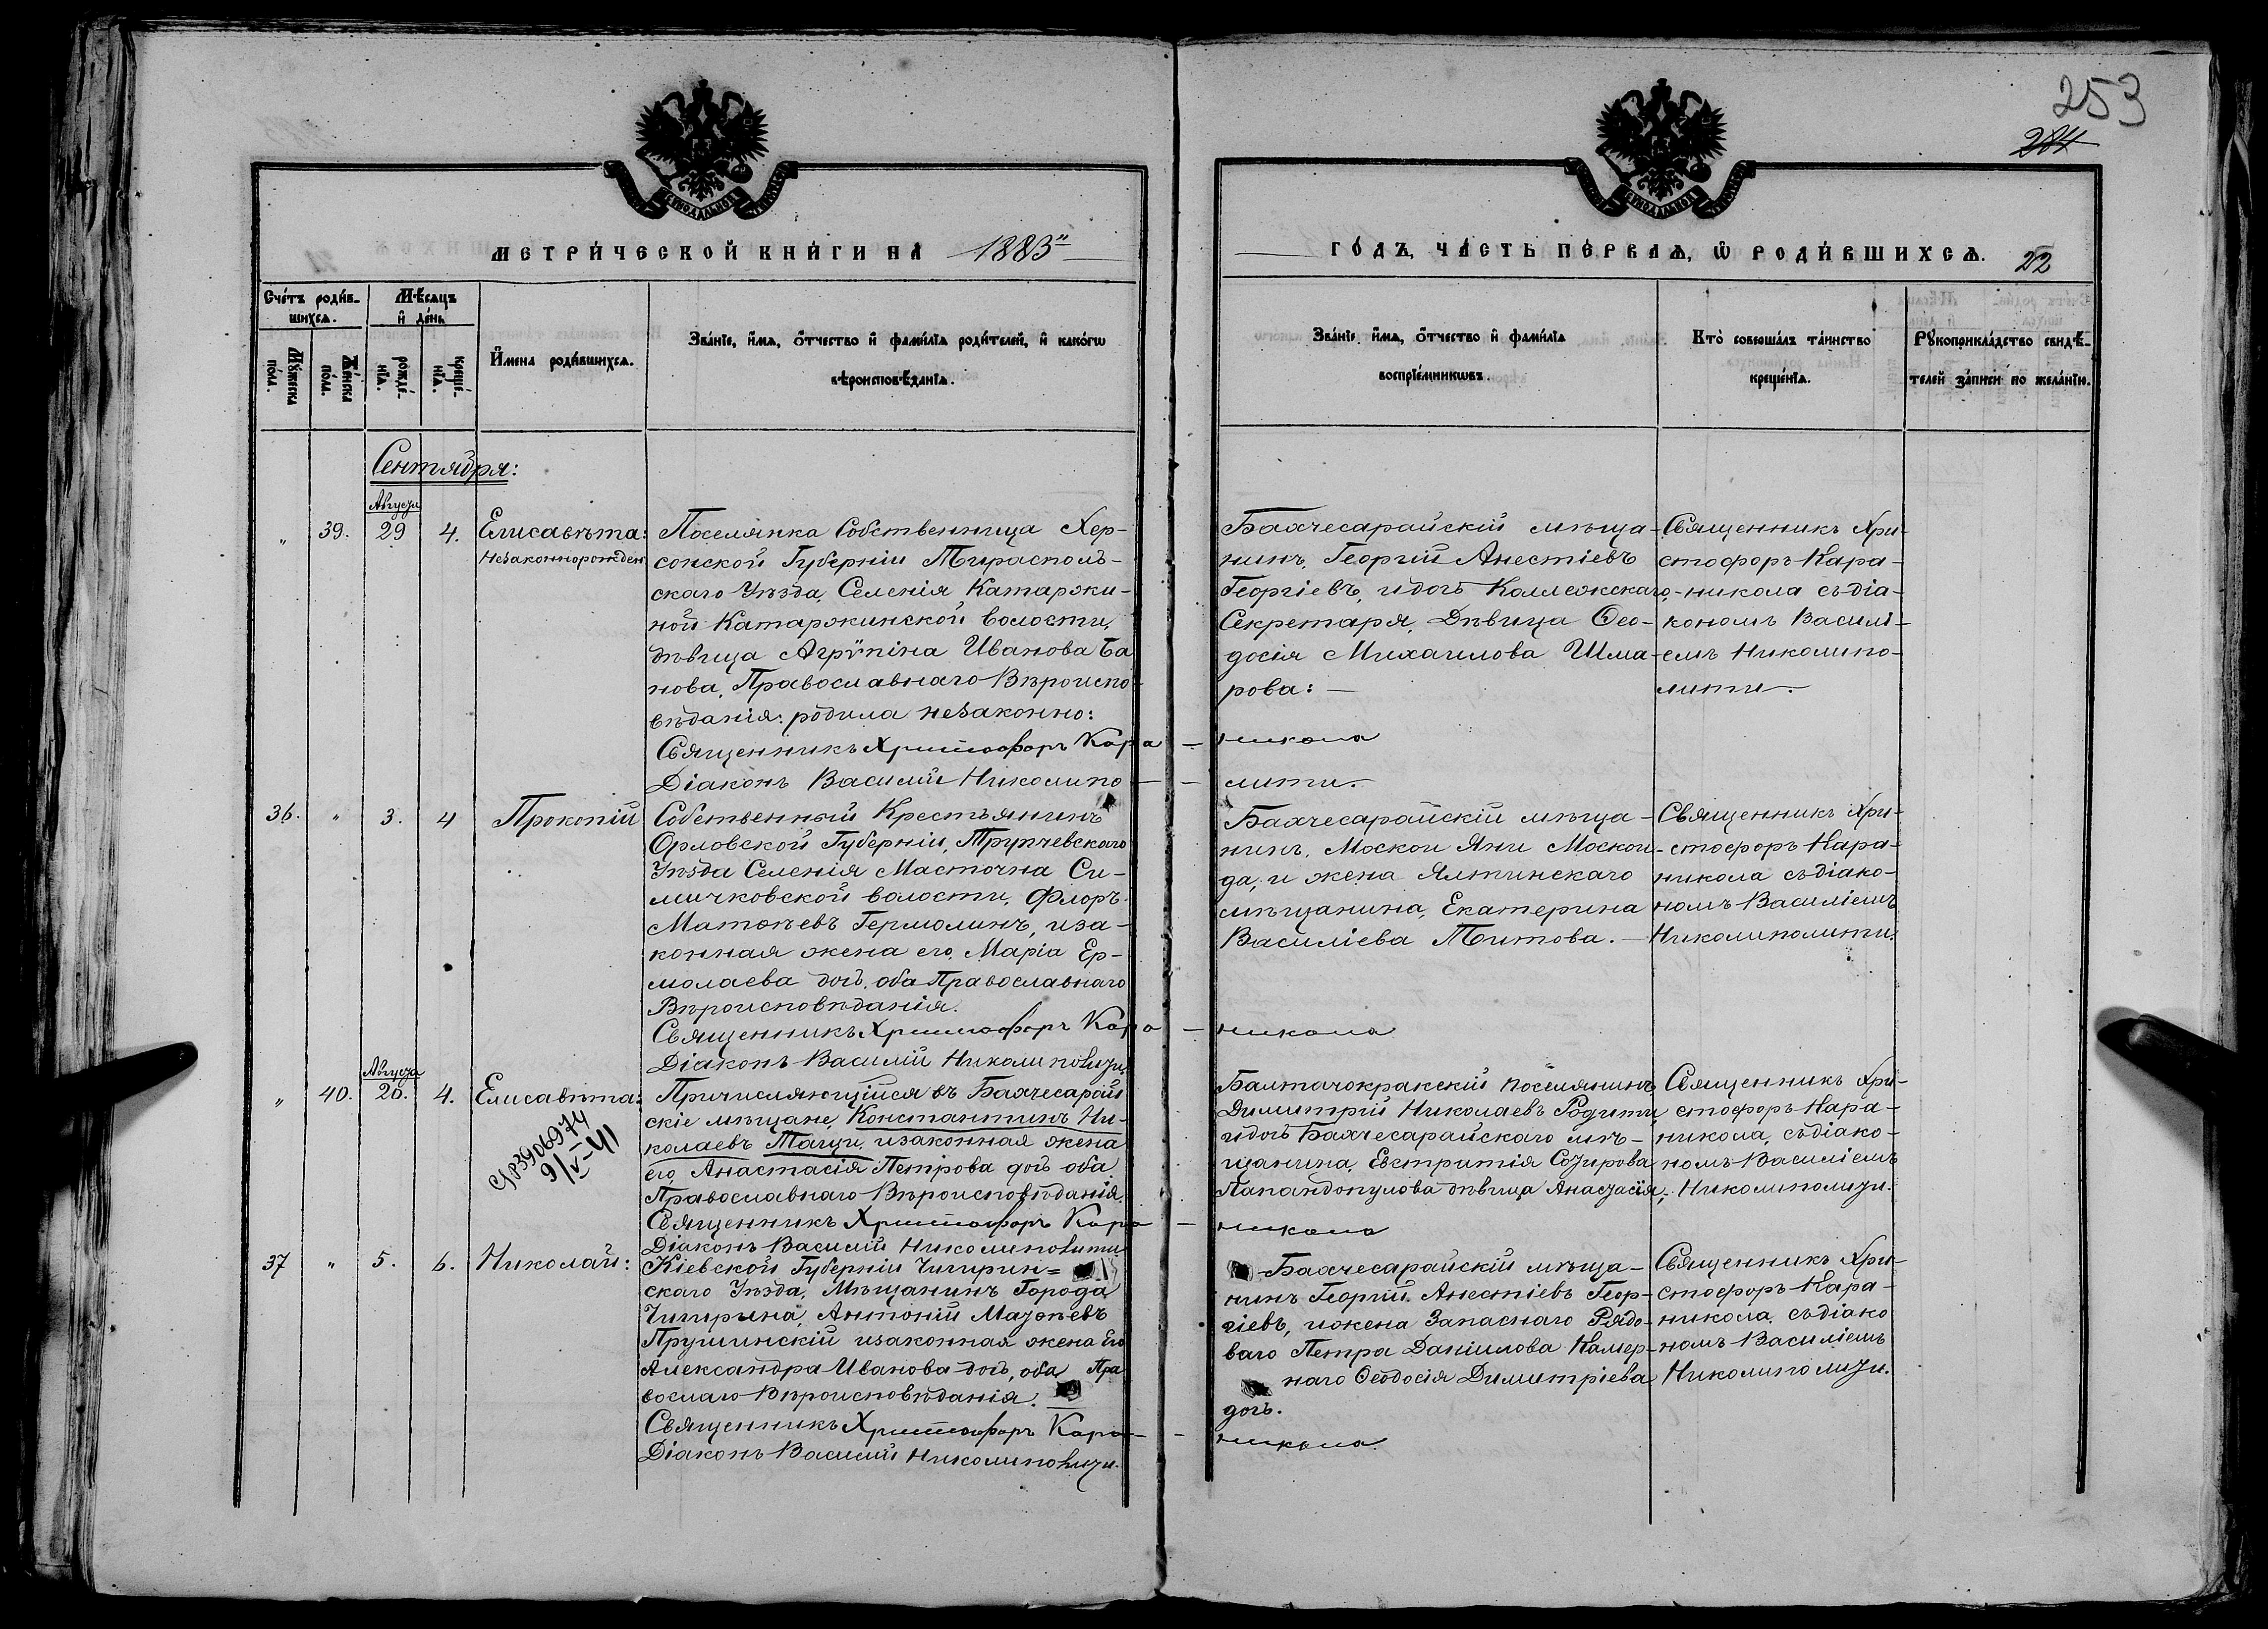 253
284
СѴНОДАЛЬНОЙ
СѴНОДАЛЬНОЙ
МЕТРИЧЕСКОЙ КНИГИ НА 1883"
ГОДЪ, ЧАСТЬ ПЕРВАѦ, Ѡ РОДИВШИХСѦ. 22
Счетъ родив-
шихсѧ.
Мѣсяцъ
и день
Мꙋжеска
пола.
Женска
пола.
рожде-
нїѧ.
креще-
нїѧ.
Имена родившихсѧ.
Званїе, имѧ, отчество и фамилїѧ родителей, и какогѡ
вѣроисповѣданїѧ.
Званїе, имѧ, отчество и фамилїѧ
воспрїемникѡвъ.
Кто совершалъ таинство
крещенїѧ.
Рꙋкоприкладство свидѣ-
телей записи по желанїю.
Сентября:
Августа
„ 39. 29 4. Елисавѣта:
Незаконнорожден
Поселянка Собственница Хер-
сонской Губерніи Тирасполь-
скаго Уѣзда, Селенія Катаржи-
ной Катаржинской волости,
дѣвица Агрѵпіна Иванова Ба
нова, Православнаго Вѣроиспо-
вѣданія: родила незаконно:
Священникъ Христофоръ Кара - никола
Діаконъ Василій Николипо - лити.
Бахчесарайскій мѣща-
нинъ, Георгій Анестіевъ
Георгіевъ, идочь Коллежскаго,
Секретаря, Дѣвица Ѳео-
досія Михаилова Шма-
рова: -
Священникъ Хри-
стофоръ Кара-
-никола съдіа-
кономъ Василі-
емъ Николипо-
лити.
36. „ 3. 4 Прокопій
Собственный Крестьянинъ
Орловской Губерніи, Трупчевскаго
Уѣзда Селенія Масточна Си-
мичковской волости, Флоръ
Матѳѣевъ Гермолинъ, иза-
конная жена его, Маріа Ер-
молаева дочь, оба Православнаго
Вѣроисповѣданія.
Священникъ Христофоръ Кара - никола
Діаконъ Василій Николиполити.
Бахчесарайскій мѣща-
нинъ, Москои Яни Москои-
да, и жена Ялтинскаго
мѣщанина, Екатерина
Василіева Титова. -
Священникъ Хри-
стофоръ Кара-
никола съдіако-
номъ Василіемъ
Николиполити.
Августа
„ 40. 26. 4. Елисавѣта:
9/V-41
Причисляющійся въ Бахчесарай
скіе мѣщане, Константинъ Ни-
колаевъ Тагци, изаконная жена
его, Анастасія Петрова дочь оба
Православнаго Вѣроисповѣданія.
Священникъ Христофоръ Кара - никола
Діаконъ Василій Николиполити
Балтачокракскій поселянинъ,
Димитрій Николаевъ Родити,
идочь Бахчесарайскаго мѣ-
щанина, Евстратія Сотирова
Папандопулова дѣвица Анастасія,
Священникъ Хри-
стофоръ Кара-
никола, съдіако-
номъ Василіемъ
Николиполити.
37 „ 5. 6. Николай:
Кіевской Губерніи Чигирин=
скаго Уѣзда, Мѣщанинъ Города
Чигирина, Антоній Матѳѣевъ
Прушинскій изаконная жена Его
Александра Иванова дочь, оба Пра
вославо Вѣроисповѣданія.
Священникъ Христофоръ Кара - никола
Діаконъ Василій Николиполити.
Бахчесарайскій мѣща-
нинъ Георгій Анестіевъ Геор-
гіевъ, ижена Запаснаго Рядо-
ваго Петра Даніилова Камер-
наго Ѳеодосія Димитріева
дочь.
Священникъ Хри-
стофоръ Кара-
никола, съдіако
номъ Василіемъ
Николиполити.